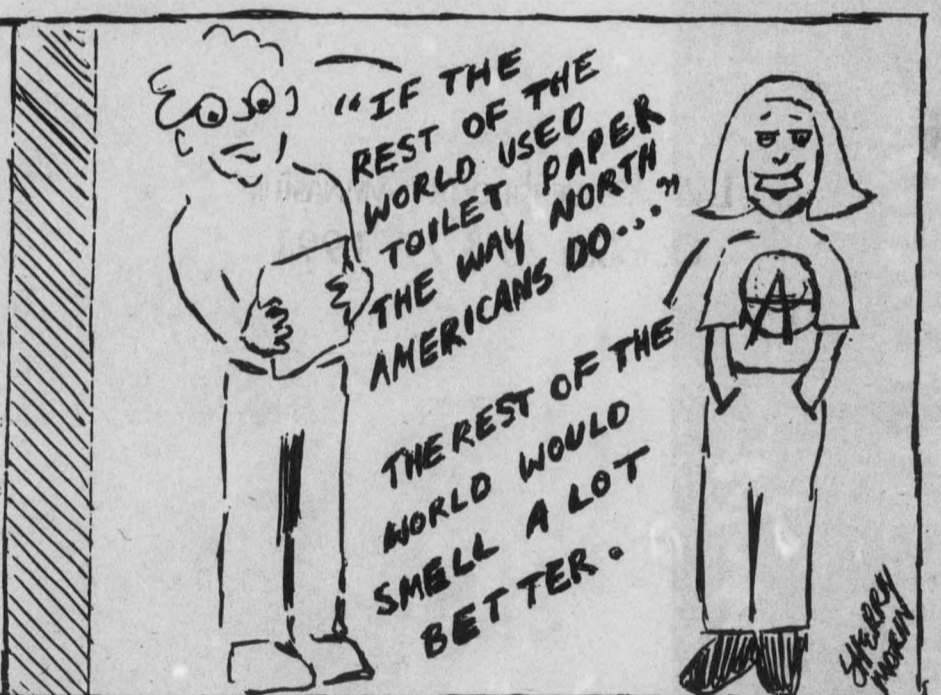 "IF THE
REST OF THE
WORLD USED
TOILET PAPER
THE WAY NORTH
AMERICANS DO..."
THE REST OF THE
WORLD WOULD
SMELL A LOT
BETTER.
A
SHERRY
MORIN